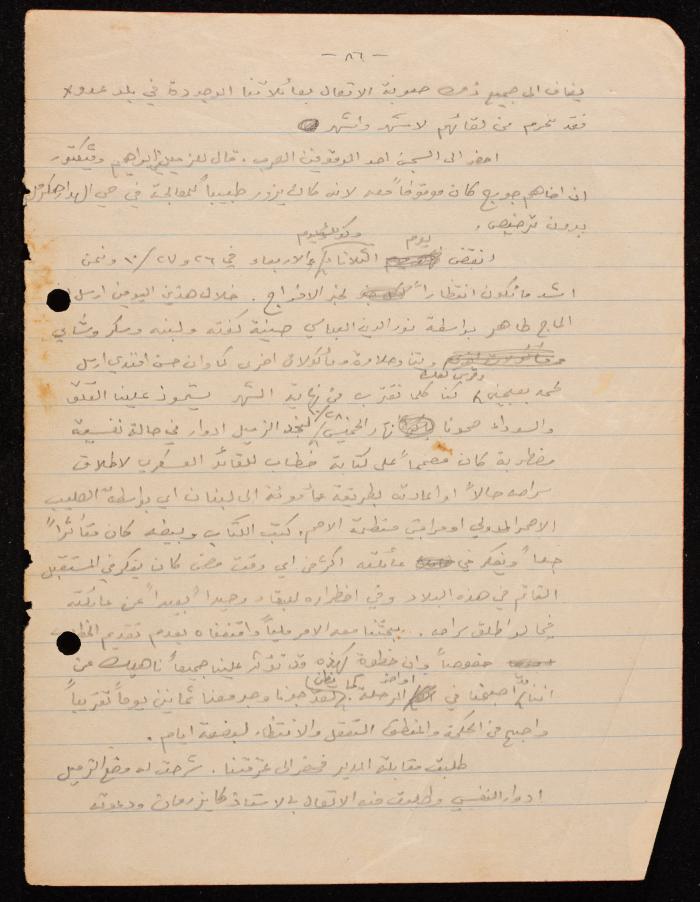 - ٨٦ -
يضاف الى جميع ذلك صعوبة الاتصال بعائلاتنا الموجودة في بلد عدو
فقد نحرم من لقائهم لاشهر واشهر
احضر الى السجن احد الموقوفين العرب. قال للزميلين ابراهيم وفيكتور
ان اخاهم جورج كان موقوفاً معه لانه كان يزور طبيباً للمعالجة في حي الهدار
بدون ترخيص.
يوم
انقضى الثلاثاء والاربعاء في ٢٦ و ٢٧/١٠ ونحن
اشد ما نكون انتظاراً لخبر الافراج. خلال هذين اليومين ارسل
الحاج طاهر بواسطة نور الدين العباسي صينية كفته ولبنه وسكر وشاي
وتتن وحلاوة ومأكولات اخرى كما وان حسن افندي ارسل
كنا كلما نقترب من نهاية الشهر يستحوذ علينا القلق
والسوداء صحونا نهار الخميس ٢٨/١٠ لنجد الزميل ادوار في حالة نفسية
مضطربة كان مصمماً على كتابة خطاب للقائد العسكري لاطلاق
سراحه حالاً او اعادته بطريقة مأمونة الى لبنان اي بواسطة الصليب
الاحمر الدولي او مراقبي منظمة الامم. كتب الكتاب وبيضه كان متأثراً
جداً ويفكر في عائلته اكثر من اي وقت مضى كان يفكر في المستقبل
القاتم في هذه البلاد وفي اضطراره للبقاء وحيداً بعيداً عن عائلته
فيما لو اطلق سراحه. بحثنا معه الامر ملياً واقنعناه بعدم تقديم
خصوصاً وان خطوة كهذه قد تؤثر علينا جميعاً ناهيك عن
اواخر كما يظن
اننا قد اصبحنا في المرحلة وجد معنا ثمانين يوماً تقريباً
واصبح من الحكمة والمنطق التعقل والانتظار لبضعة ايام.
طلبت مقابلة المدير فحضر الى غرفتنا. شرحت له وضع الزميل
ادوار النفسي وطلبت منه الاتصال بالاستاذ ودعوته